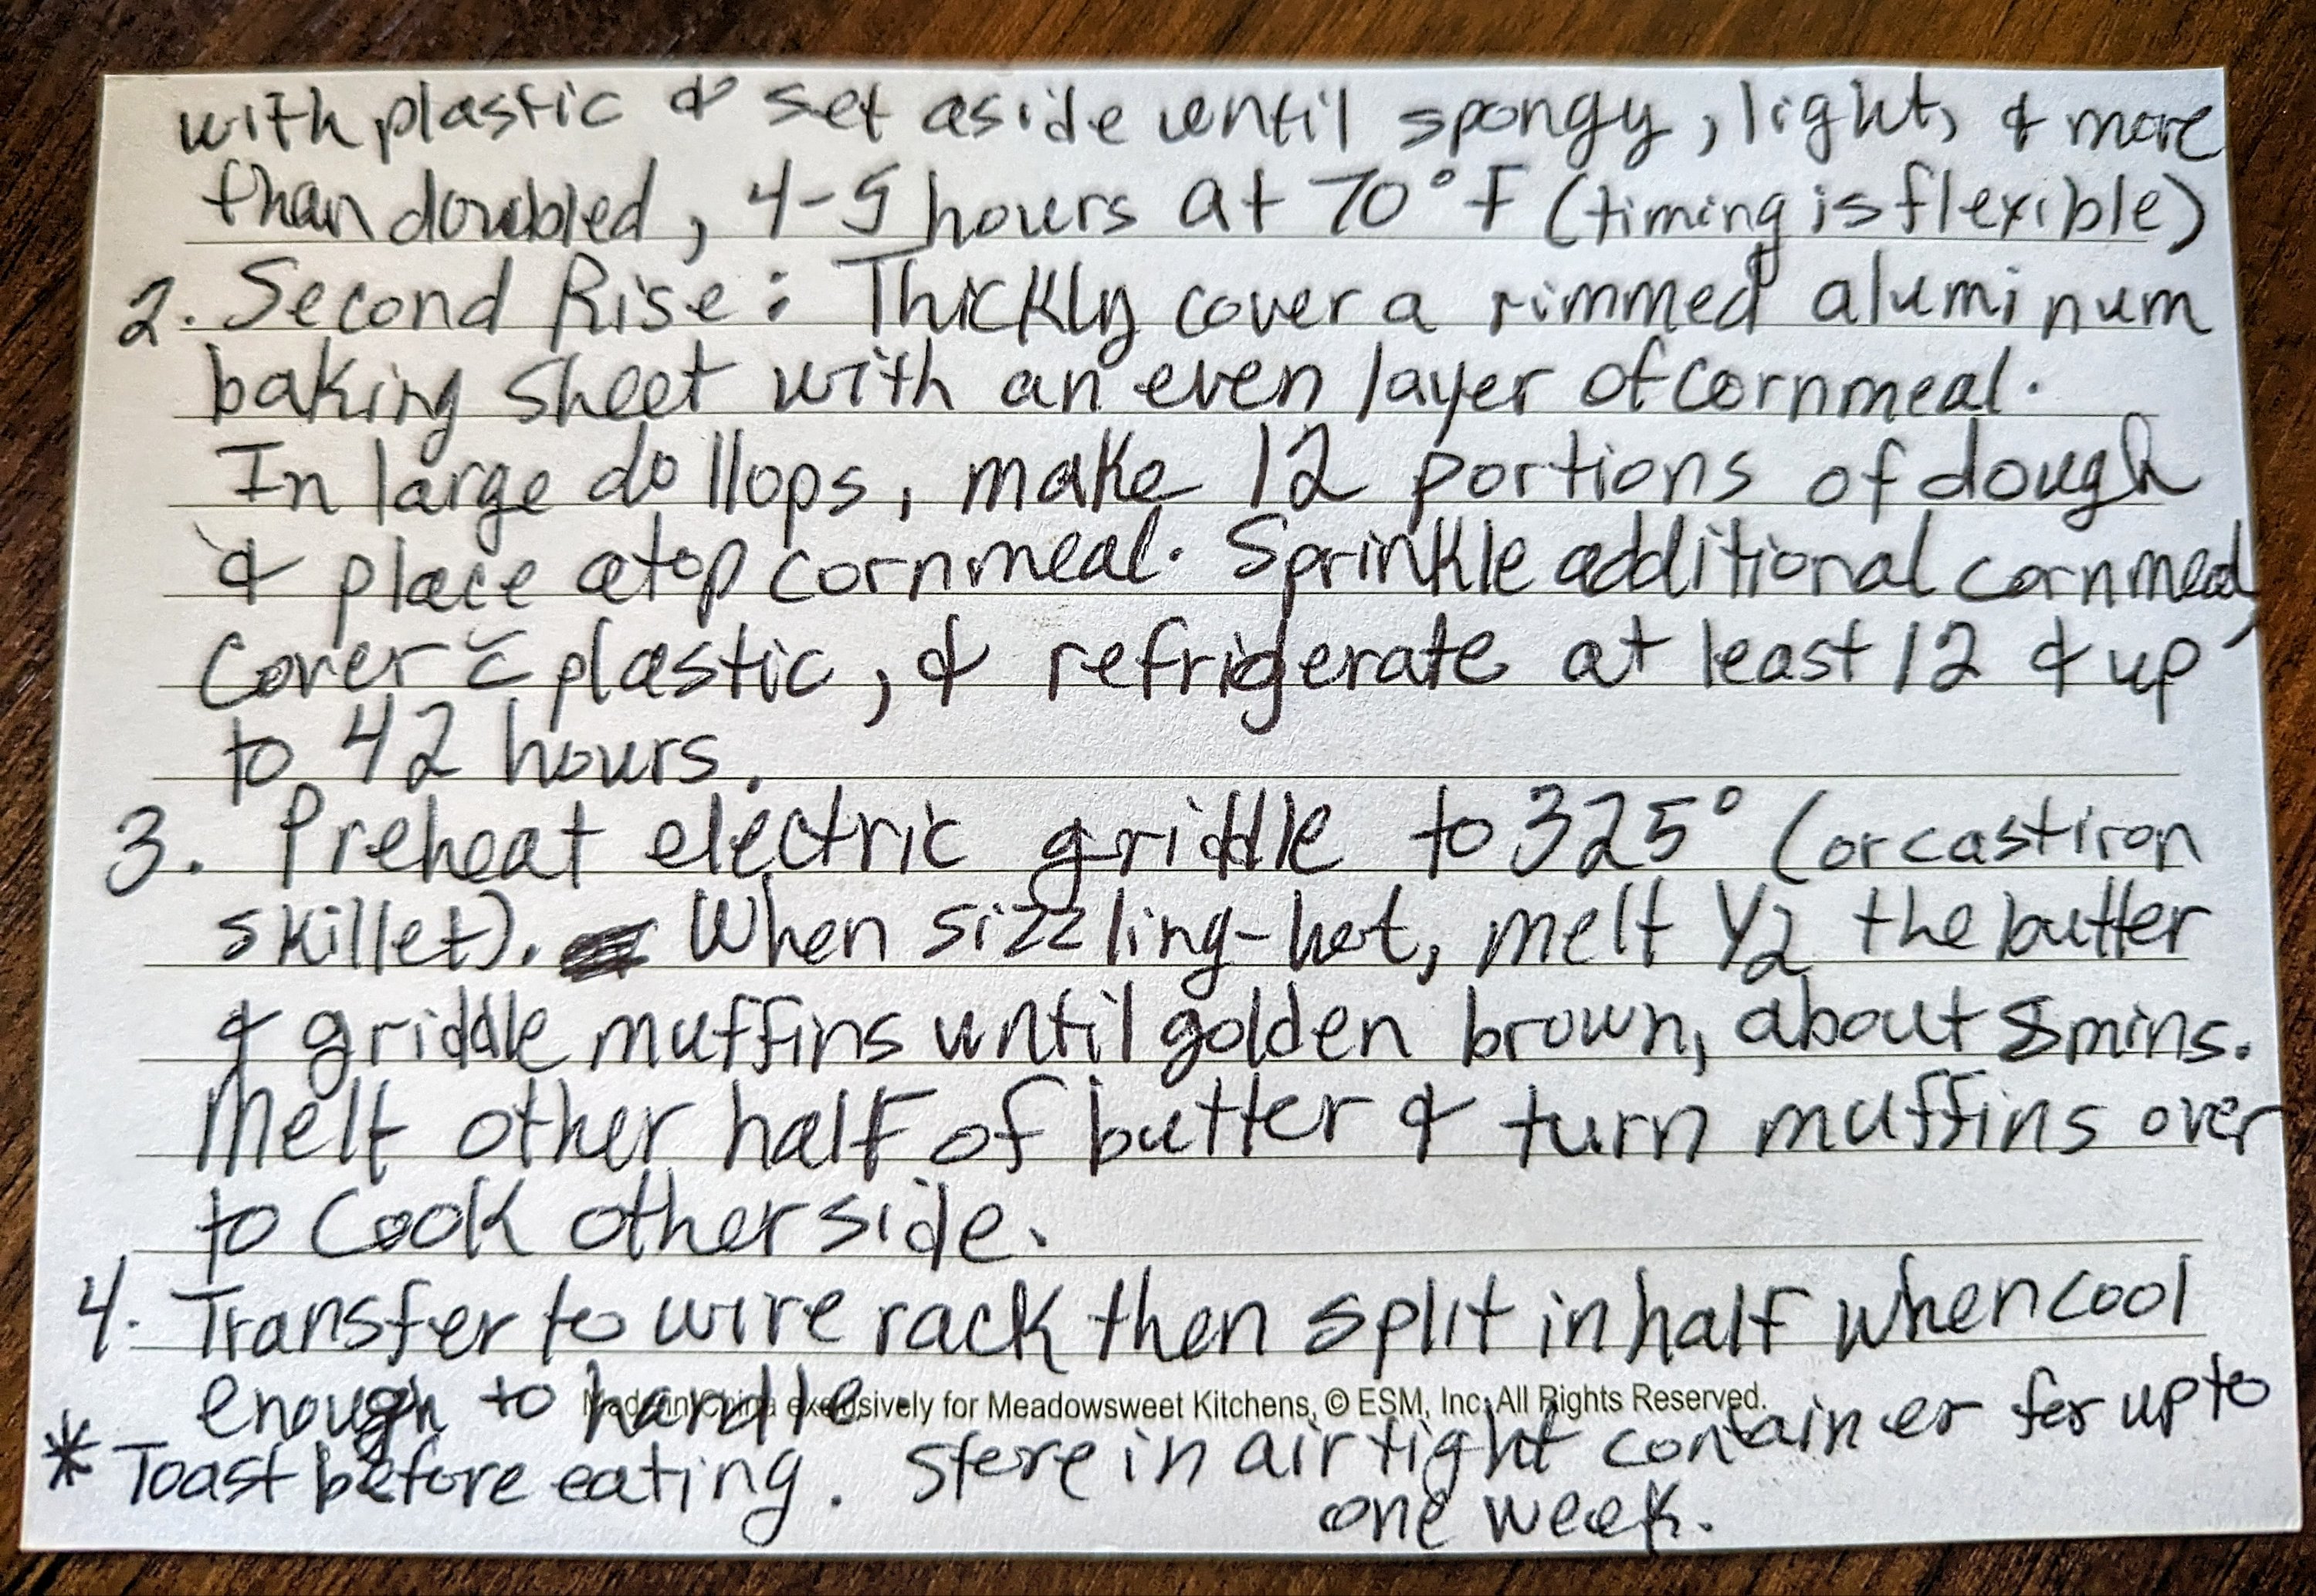 with plastic & set aside until spongy, light, & more
than doubled, 4-5 hours at 70°F (timing is flexible)
2. Second Rise: Thickly cover a rimmed aluminum
baking sheet with an even layer of cornmeal.
In large dollops, make 12 portions of dough
& place atop cornmeal. Sprinkle additional cornmeal,
cover c̄ plastic, & refrigerate at least 12 & up
to 42 hours.
3. Preheat electric griddle to 325° (or cast iron
skillet). When sizzling-hot, melt 1/2 the butter
& griddle muffins until golden brown, about 8 mins.
Melt other half of butter & turn muffins over
to cook other side.
4. Transfer to wire rack then split in half when cool
enough to handle.
Made in China exclusively for Meadowsweet Kitchens, © ESM, Inc. All Rights Reserved.
* Toast before eating. Store in airtight container for up to
one week.